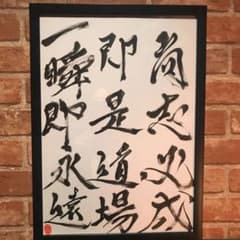 尚志必成
即是道場
一瞬即永遠